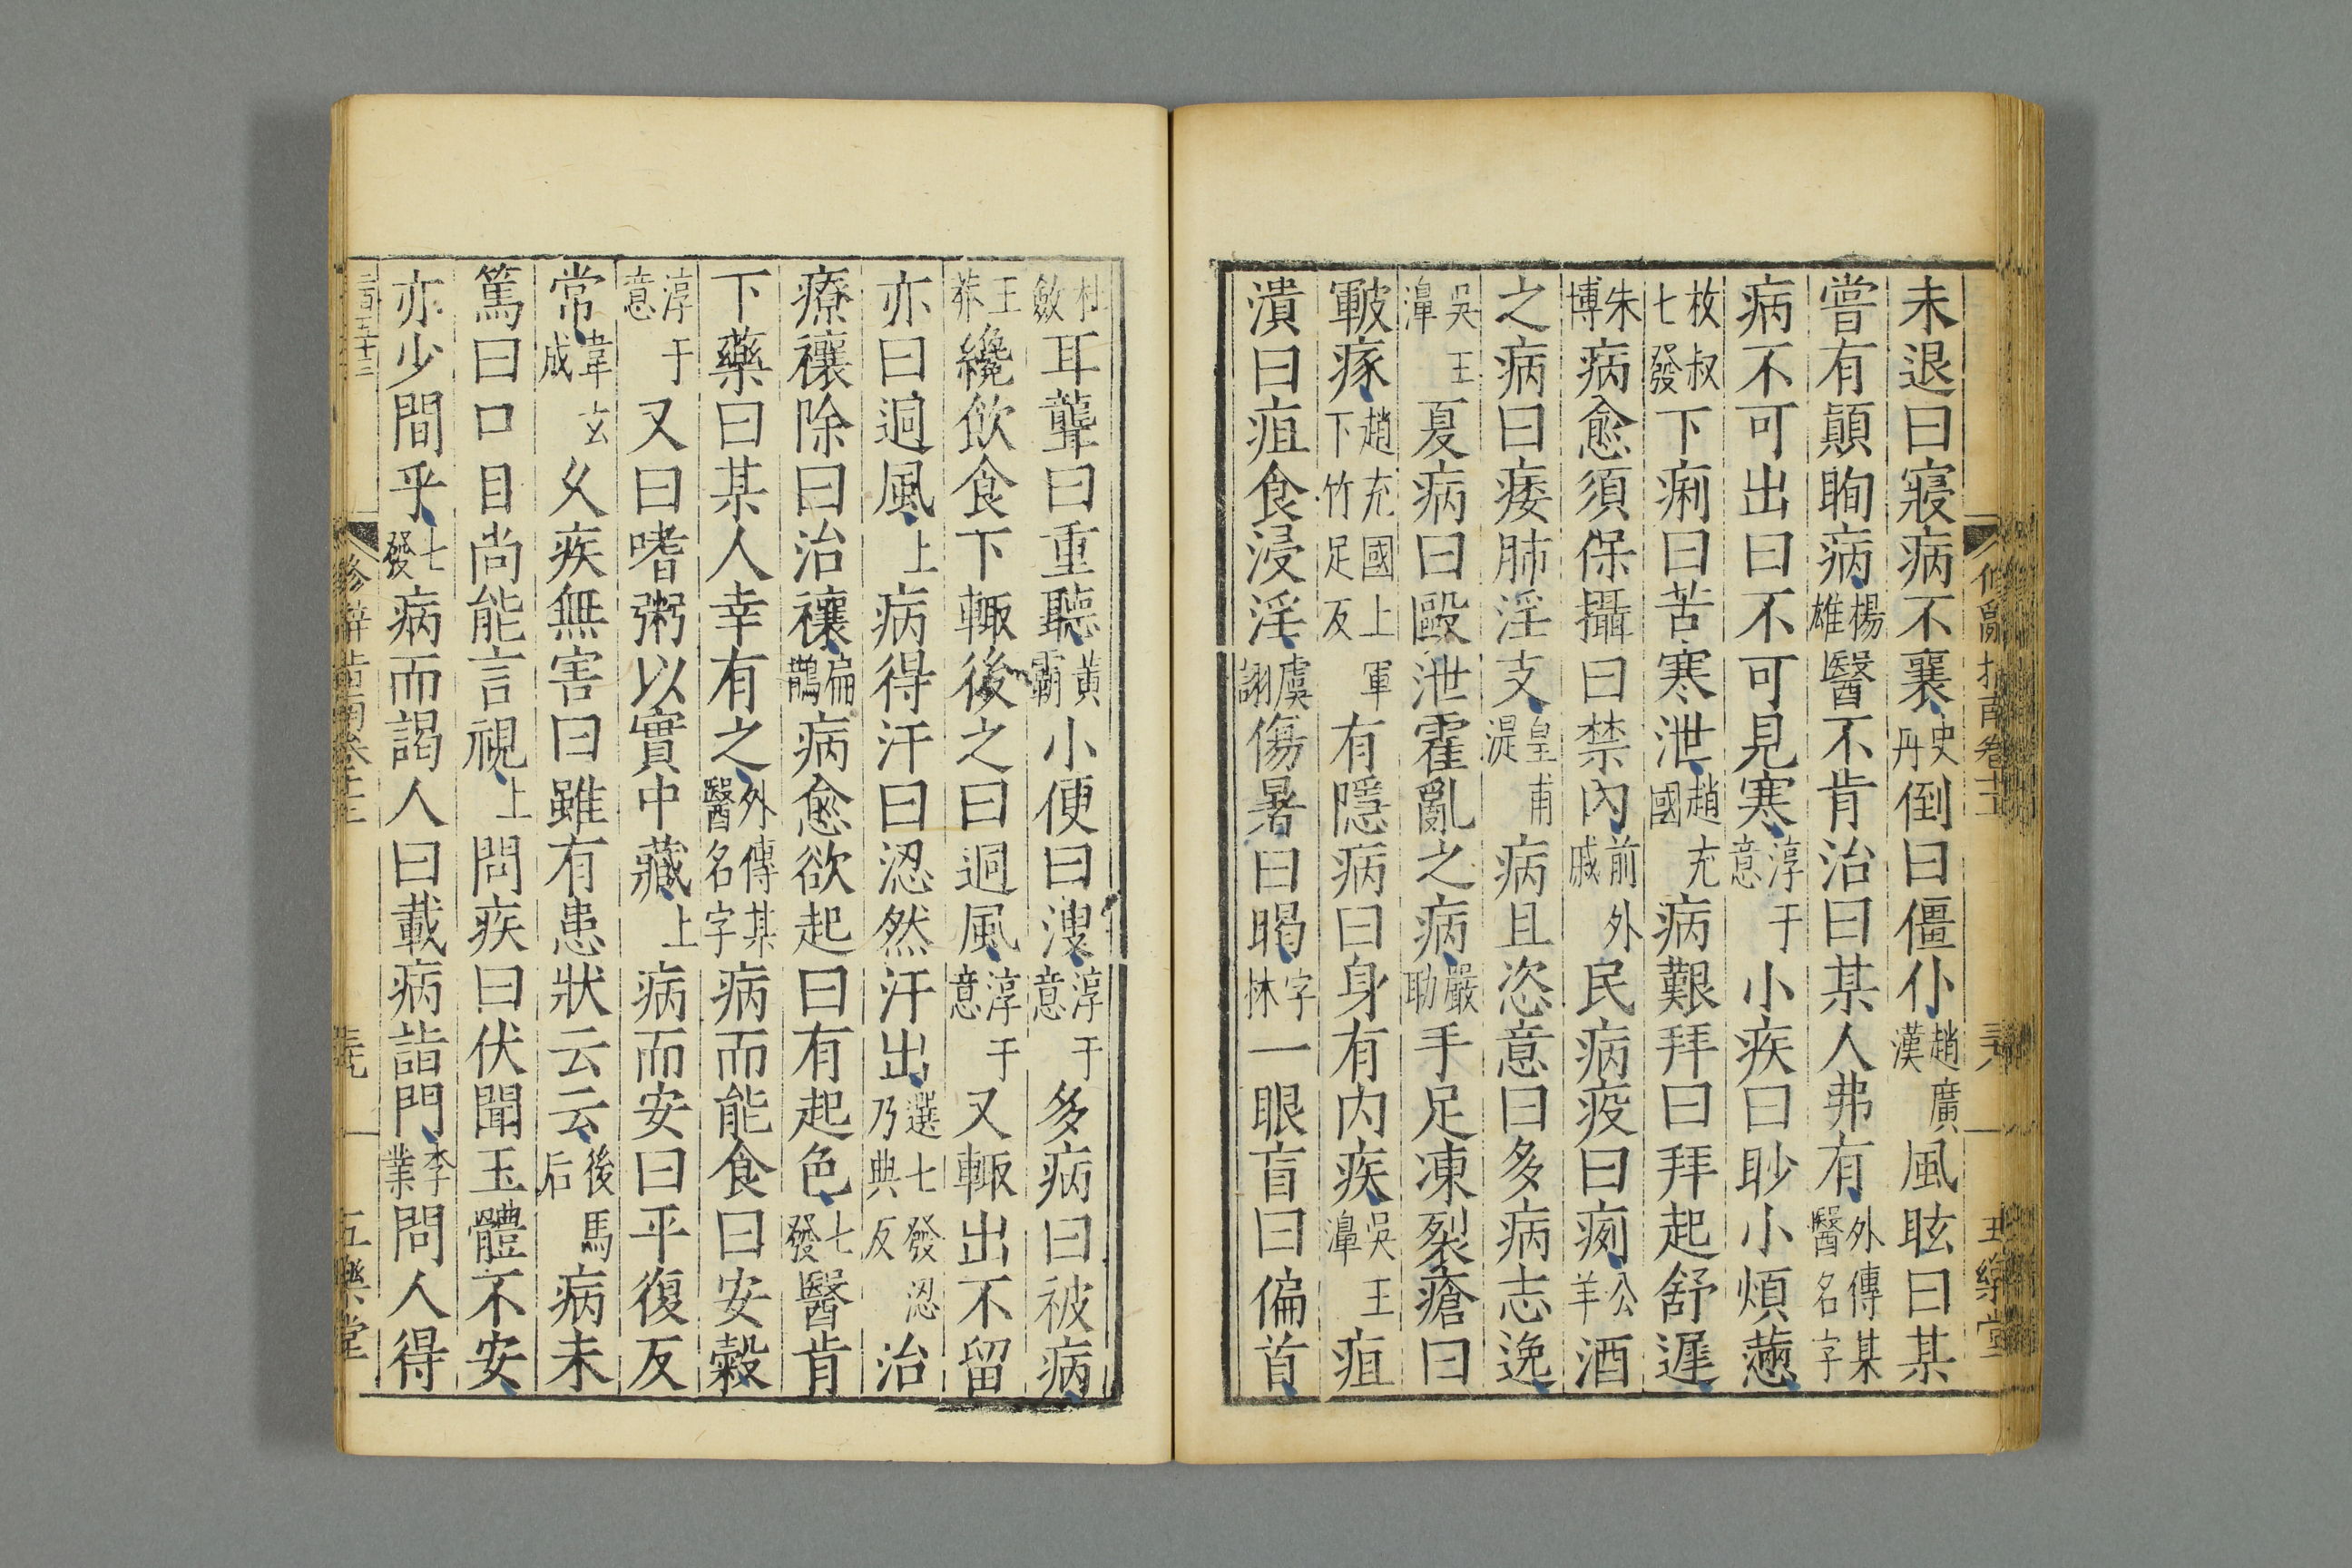 未退曰寢病不襄史丹倒曰僵仆趙廣漢風眩曰某
嘗有顛眴病楊雄醫不肯治曰某人弗有外傳某醫名字
病不可出曰不可見寒淳于意小疾曰眇小煩懣
枚叔七發下痢曰苦寒泄趙充國病艱拜曰拜起舒遲
朱博病愈須保攝曰禁內前外戚民病疫曰㾐公羊酒
之病曰痿肺淫支皇甫湜病且恣意曰多病志逸
吳王濞夏病曰毆泄霍亂之病嚴助手足凍裂瘡曰
皸瘃趙充國上軍下竹足反有隱病曰身有內疾吳王濞疽
潰曰疽食浸淫虞詡傷暑曰暍字林一眼盲曰偏首
杜斂耳聾曰重聽黃霸小便曰溲淳于意多病曰被病
王莽纔飲食下輒後之曰迵風淳于意又輒出不留
亦曰迵風上病得汗曰涊然汗出選七發涊乃典反治
療禳除曰治禳扁鵲病愈欲起曰有起色七發醫肯
下藥曰某人幸有之外傳某醫名字病而能食曰安穀
淳于意又曰嗜粥以實中藏上病而安曰平復反
常韋玄成久疾無害曰雖有患狀云云後馬后病未
篤曰口目尚能言視上問疾曰伏聞玉體不安
亦少間乎七發病而謁人曰載病詣門李業問人得
修辭指南卷
五樂堂